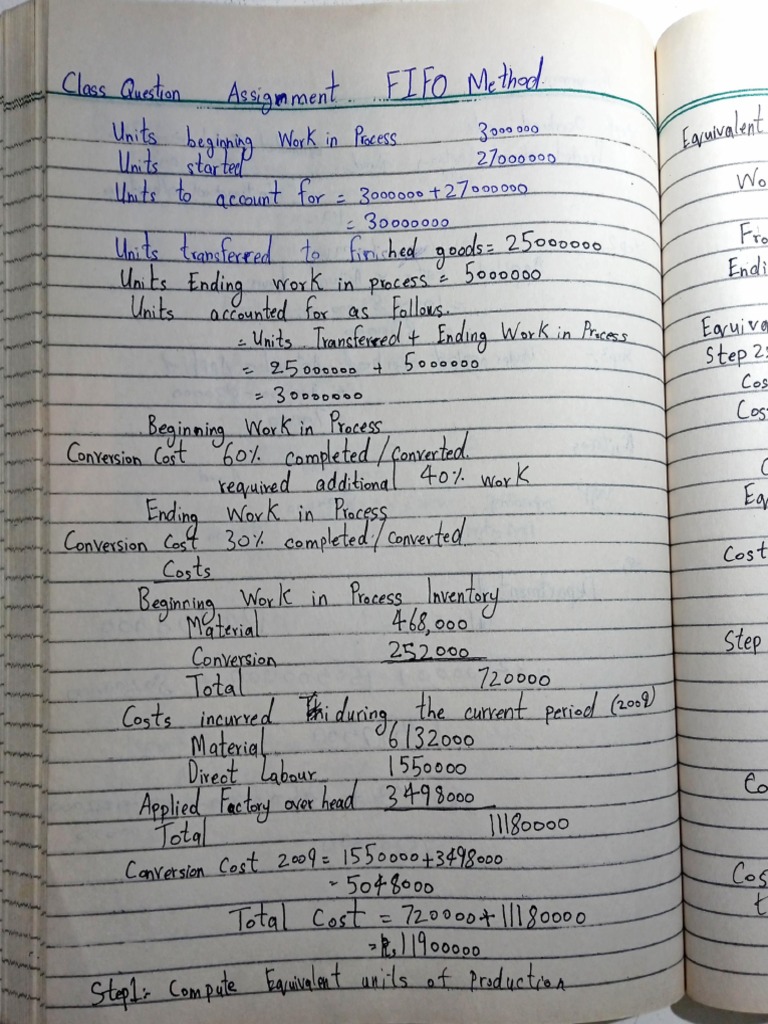 Class Question Assignment.. FIFO Method.
Units beginning Work in Process 3000000
Units started 27000000
Units to account for = 3000000+27000000
= 30000000
Units transferred to finished goods= 25000000
Units Ending work in process = 5000000
Units accounted for as Follows.
= Units Transferred + Ending Work in Process
= 25000000 + 5000000
= 30000000
Beginning Work in Process
Conversion Cost 60% completed/converted.
required additional 40% work
Ending Work in Process
Conversion Cost 30% completed/converted
Costs
Beginning Work in Process Inventory
Material 468,000
Conversion 252000
Total 720000
Costs incurred during the current period (2009)
Material 6132000
Direct Labour 1550000
Applied Factory over head 3498000
Total 11180000
Conversion Cost 2009 = 1550000+3498000
= 5048000
Total Cost = 720000+11180000
= 11900000
Step1:- Compute Equivalent units of Production
Equivalent
Wo
Fro
Endi
Equiva
Step 2:
Cos
Cos
C
Eq
Cost
Step
Co
Cos
t